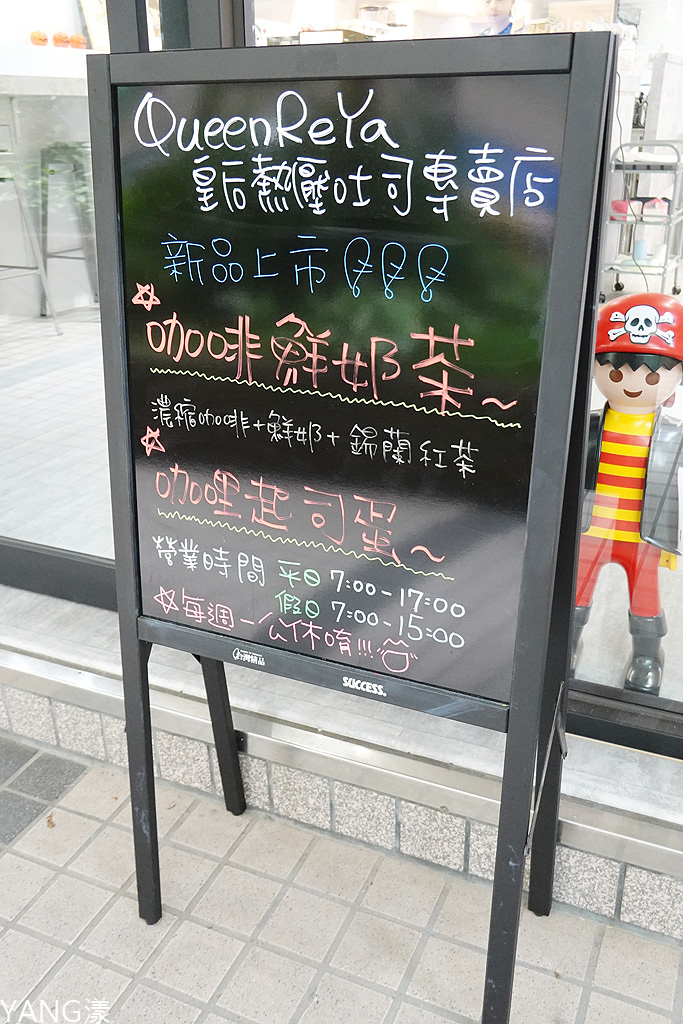 QueenReYa
皇后熱壓吐司專賣店
新品上市!!!
咖啡鮮奶茶~
濃縮咖啡+鮮奶+錫蘭紅茶
咖哩起司蛋~
營業時間 平日 7:00-17:00
假日 7:00-15:00
每週一公休唷!!!
台灣精品
SUCCESS.
YANG漾